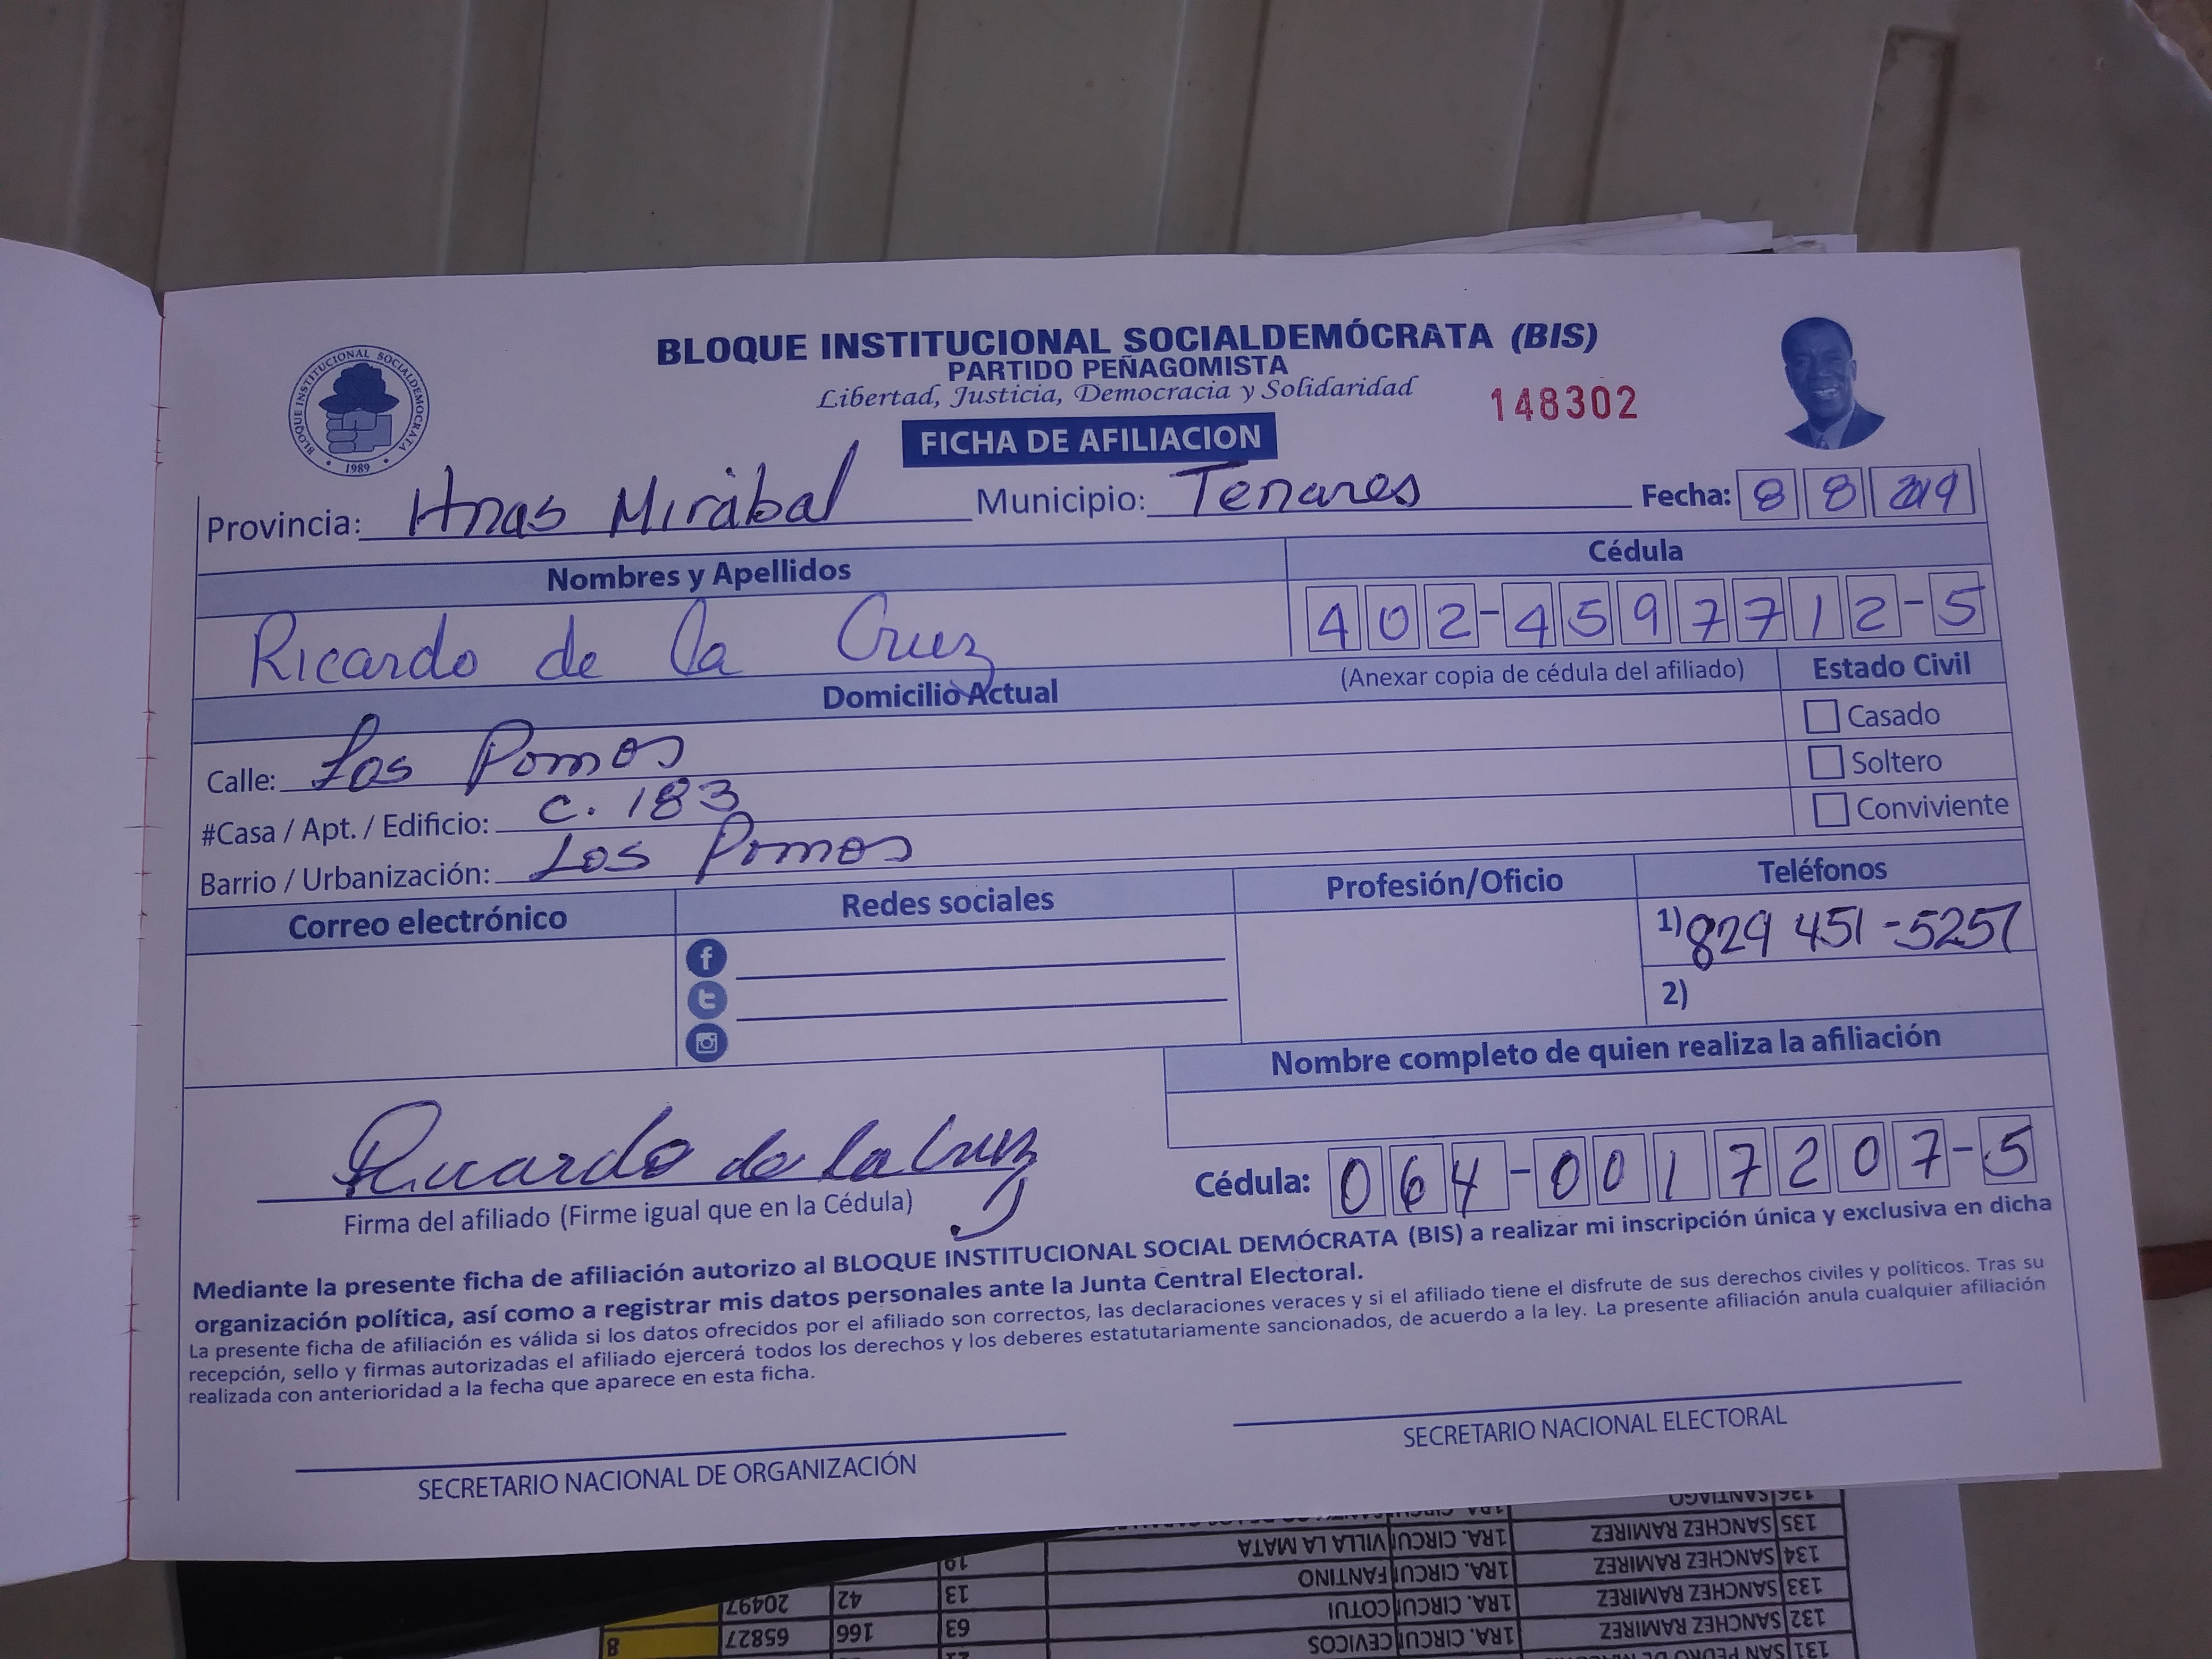 BLOQUE INSTITUCIONAL SOCIALDEMÓCRATA (BIS)
PARTIDO PEÑAGOMISTA
Libertad, Justicia, Democracia y Solidaridad
148302
BLOQUE INSTITUCIONAL SOCIALDEMOCRATA
• 1989 •
FICHA DE AFILIACION
Provincia: Hnas Mirabal Municipio: Tenares Fecha: 8 8 2019
Nombres y Apellidos Cédula
Ricardo de la Cruz 402-4597712-5
(Anexar copia de cédula del afiliado) Estado Civil
Domicilio Actual
Casado
Calle: Los Pomos
Soltero
#Casa / Apt. / Edificio: C. 183
Conviviente
Barrio / Urbanización: Los Pomos
Correo electrónico Redes sociales Profesión/Oficio Teléfonos
1) 829 451-5257
2)
Nombre completo de quien realiza la afiliación
Ricardo de la Cruz
Cédula: 064-0017207-5
Firma del afiliado (Firme igual que en la Cédula)
Mediante la presente ficha de afiliación autorizo al BLOQUE INSTITUCIONAL SOCIAL DEMÓCRATA (BIS) a realizar mi inscripción única y exclusiva en dicha
organización política, así como a registrar mis datos personales ante la Junta Central Electoral.
La presente ficha de afiliación es válida si los datos ofrecidos por el afiliado son correctos, las declaraciones veraces y si el afiliado tiene el disfrute de sus derechos civiles y políticos. Tras su
recepción, sello y firmas autorizadas el afiliado ejercerá todos los derechos y los deberes estatutariamente sancionados, de acuerdo a la ley. La presente afiliación anula cualquier afiliación
realizada con anterioridad a la fecha que aparece en esta ficha.
SECRETARIO NACIONAL DE ORGANIZACIÓN
SECRETARIO NACIONAL ELECTORAL
131 SAN PEDRO DE
132 SANCHEZ RAMIREZ 1RA. CIRCUI CEVICOS 63 166 65827 8
133 SANCHEZ RAMIREZ 1RA. CIRCUI COTUI 13 42 20497
134 SANCHEZ RAMIREZ 1RA. CIRCUI FANTINO 19
135 SANCHEZ RAMIREZ 1RA. CIRCUI VILLA LA MATA
136 SANTIAGO 1RA. CIRCUI